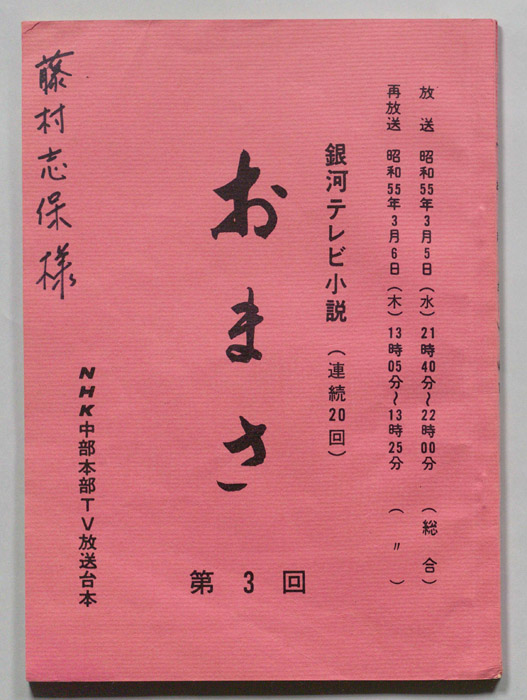 放送 昭和55年3月5日(水)21時40分~22時00分(総合)
再放送 昭和55年3月6日(木)13時05分~13時25分(〃)
銀河テレビ小説(連続20回)
おまさ
第3回
NHK中部本部TV放送台本
藤村志保様